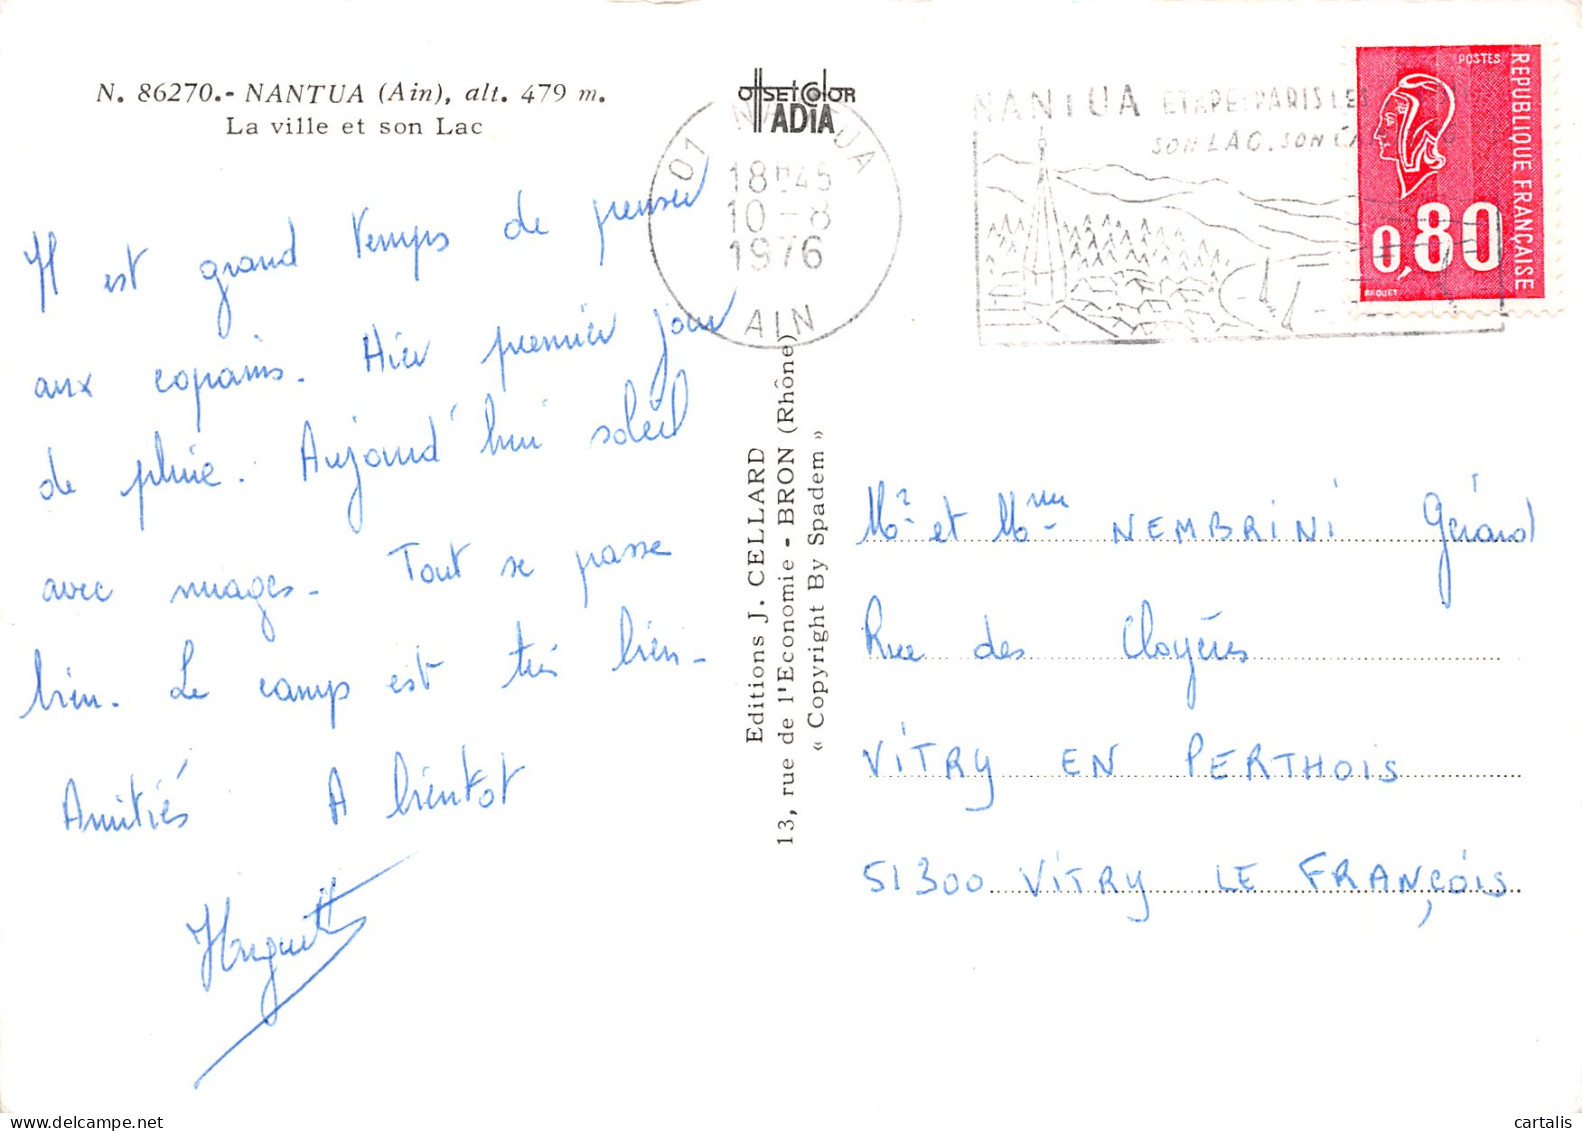 N. 86270.- NANTUA (Ain), alt. 479 m.
La ville et son Lac
Il est grand temps de penser
aux copains. Hier premier jour
de pluie. Aujourd'hui soleil
avec nuages. Tout se passe
bien. Le camp est très bien.
Amitiés A bientot
Huguette
offset color
ADIA
01 NANTUA
18H45
10-8
1976
AIN
Editions J. CELLARD
13, rue de l'Economie - BRON (Rhône)
« Copyright By Spadem »
NANTUA ETAPE: PARIS LES
SON LAC, SON
POSTES
REPUBLIQUE FRANCAISE
0,80
BEQUET
Mr et Mme NEMBRINI Gérard
Rue des Cloyères
VITRY EN PERTHOIS
51300 VITRY LE FRANÇOIS
delcampe.net
cartalis